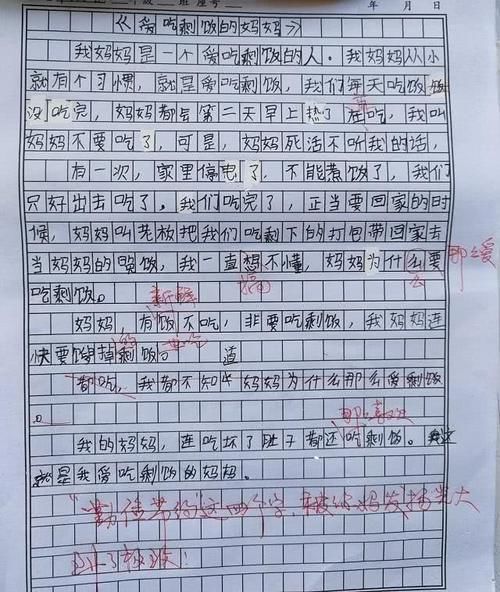 年 月 日
《爱吃剩饭的妈妈》
我妈妈是一个爱吃剩饭的人。我妈妈从小
就有个习惯，就是爱吃剩饭，我们每天吃饭
没吃完，妈妈都会第二天早上热了在吃，我叫
再
妈妈不要吃了，可是，妈妈死活不听我的话，
有一次，家里停电了，不能煮饭了，我们
只好出去吃了，我们吃完了，正当要回家的时
候，妈妈叫老板把我们吃剩下的打包带回家去
当妈妈的晚饭，我一直想不懂，妈妈为什么要
搞
那么爱
吃剩饭。
新鲜
妈妈，有饭不吃，非要吃剩饭，我妈妈连
快要馊掉剩饭。
的
都吃，我都不知道妈妈为什么那么爱剩饭
。
那么喜欢
我的妈妈，连吃坏了肚子都还吃剩饭。
就是我爱吃剩饭的妈妈。
“勤俭节约”这四个字，被你妈发扬光大